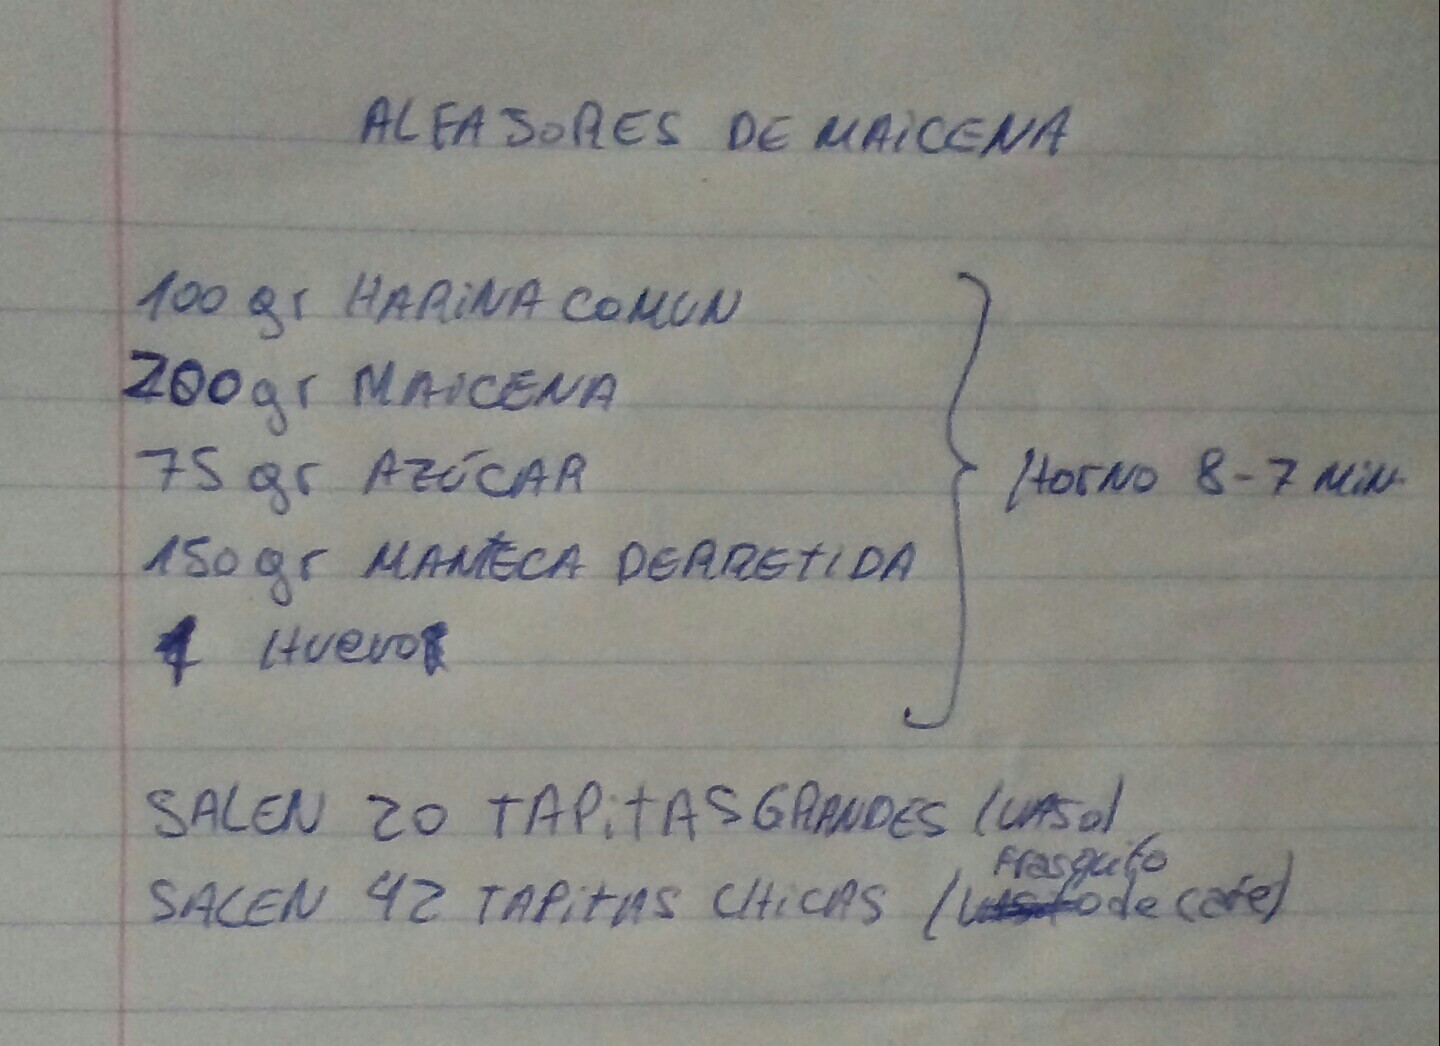 ALFAJORES DE MAICENA
100 gr HARINA COMUN
200 gr MAICENA
75 gr AZÚCAR
150 gr MANTECA DERRETIDA
1 HUEVO
HORNO 8-7 MIN.
SALEN 20 TAPITAS GRANDES (VASO)
SALEN 42 TAPITAS CHICAS (frasquito de café)